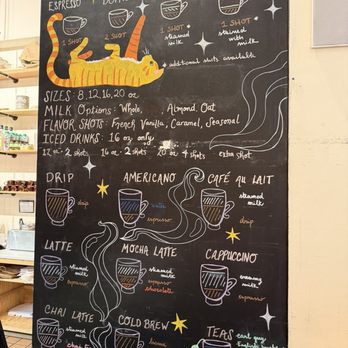 ESPRESSO
1 SHOT
2 SHOT
1 SHOT
steamed
milk
1 SHOT
stained
with
milk
* additional shots available
SIZES: 8, 12, 16, 20 oz
MILK Options: Whole, Almond, Oat
FLAVOR SHOTS: French Vanilla, Caramel, Seasonal
ICED DRINKS: 16 oz only
12 oz · 2 shots 16 oz · 2 shots 20 oz 4 shots extra shot
DRIP AMERICANO CAFÉ AU LAIT
drip
water
espresso
steamed
milk
drip
LATTE MOCHA LATTE CAPPUCCINO
steamed
milk
espresso
steamed
milk
espresso
chocolate
creamy
milk
espresso
CHAI LATTE COLD BREW TEAS
steamed
milk
chai tea
earl grey
English